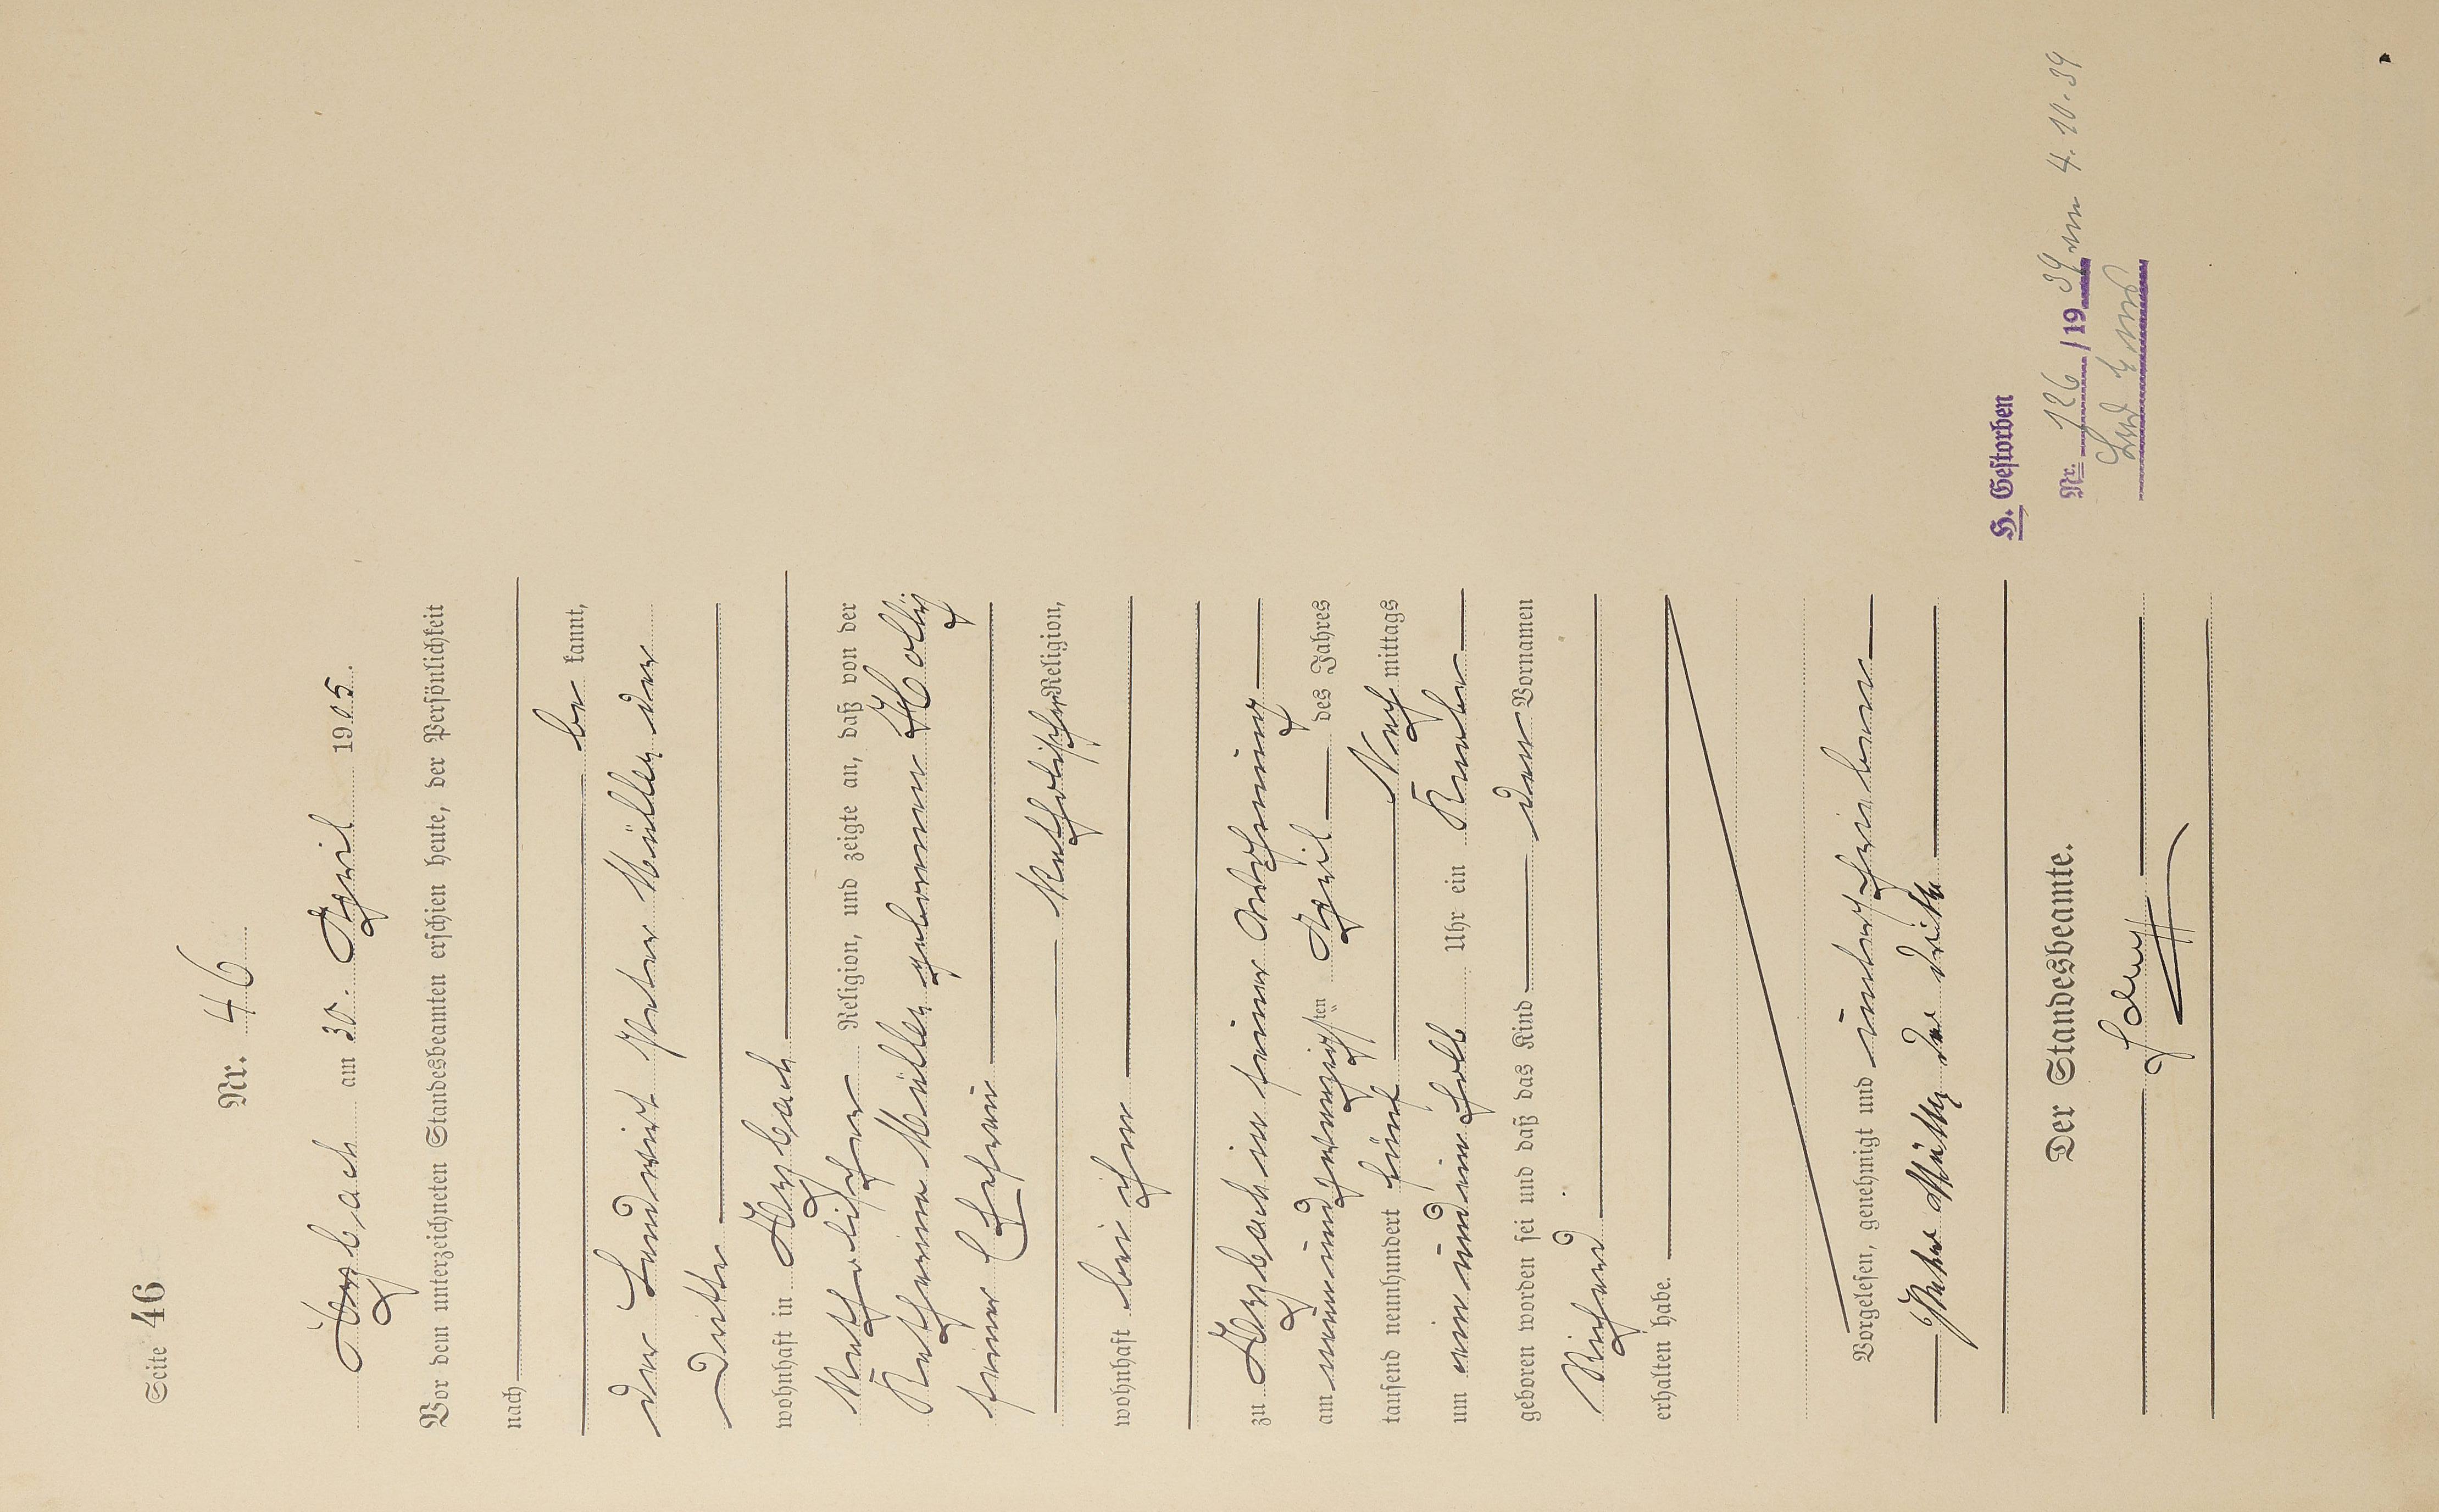 Seite 46
Nr. 46
Arzbach am 30. April 1905.
Vor dem unterzeichneten Standesbeamten erschien heute, der Persönlichkeit
nach
be kannt,
der Landwirt Peter Müller der
Dritte
wohnhaft in Arzbach
katholischer Religion, und zeigte an, daß von der
Katharina Müller geborenen Holly
seiner Ehefrau
katholischer Religion,
wohnhaft bei ihm
zu Arzbach in seiner Wohnung
am neunundzwanzigsten April des Jahres
tausend neunhundert fünf Nach mittags
um ein und ein halb Uhr ein Knabe
geboren worden sei und daß das Kind den Vornamen
Richard
erhalten habe.
Vorgelesen, genehmigt und unterschrieben
Peter Müller der dritte
Der Standesbeamte.
H. Gestorben
Nr. 126/1939 am 4.10.39
Bad Ems